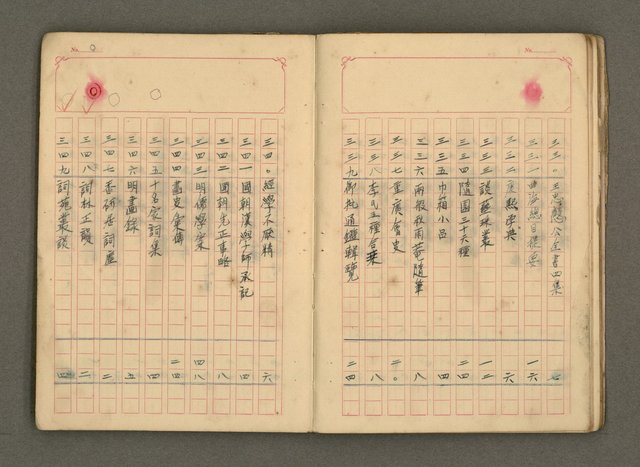 三三〇 王忠愨公全書四集 七
三三一 曲海總目提要 一六
三三二 康熙字典 六
三三三 談藝珠叢 一二
三三四 隨園三十六種 二四
三三五 巾箱小品 四
三三六 兩般秋雨菴隨筆 八
三三七 重廣會史 二〇
三三八 李氏五種合栞 八
三三九 御批通鑑輯覽 二四
No.
三四〇 經學不厭精 六
三四一 國朝漢學師承記 四
三四二 國朝先正事略 八
三四三 明儒學案 四八
三四四 畫史彙傳 二四
三四五 十名家詞集 四
三四六 明畫錄 五
三四七 香研居詞麈 二
三四八 詞林正韻 二
三四九 詞苑叢談 四